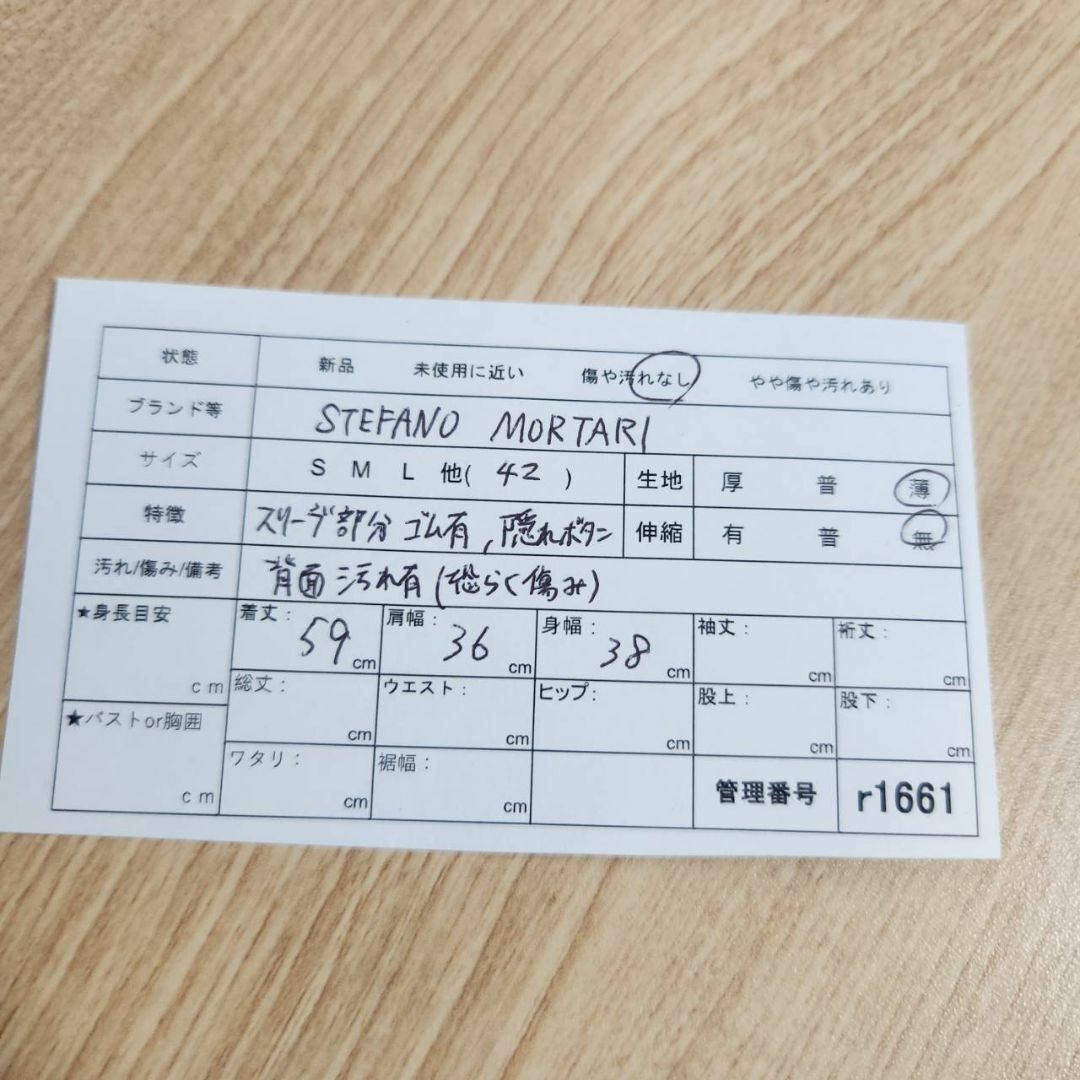 状態 新品 未使用に近い 傷や汚れなし やや傷や汚れあり
ブランド等 STEFANO MORTARI
サイズ S M L 他( 42 ) 生地 厚 普 薄
特徴 スリーブ部分 ゴム有, 隠れボタン 伸縮 有 普 無
汚れ/傷み/備考 背面 汚れ有(恐らく傷み)
★身長目安 cm 着丈: 59 cm 肩幅: 36 cm 身幅: 38 cm 袖丈: cm 裄丈: cm
総丈: cm ウエスト: cm ヒップ: cm 股上: cm 股下: cm
★バストor胸囲 cm ワタリ: cm 裾幅: cm 管理番号 r1661